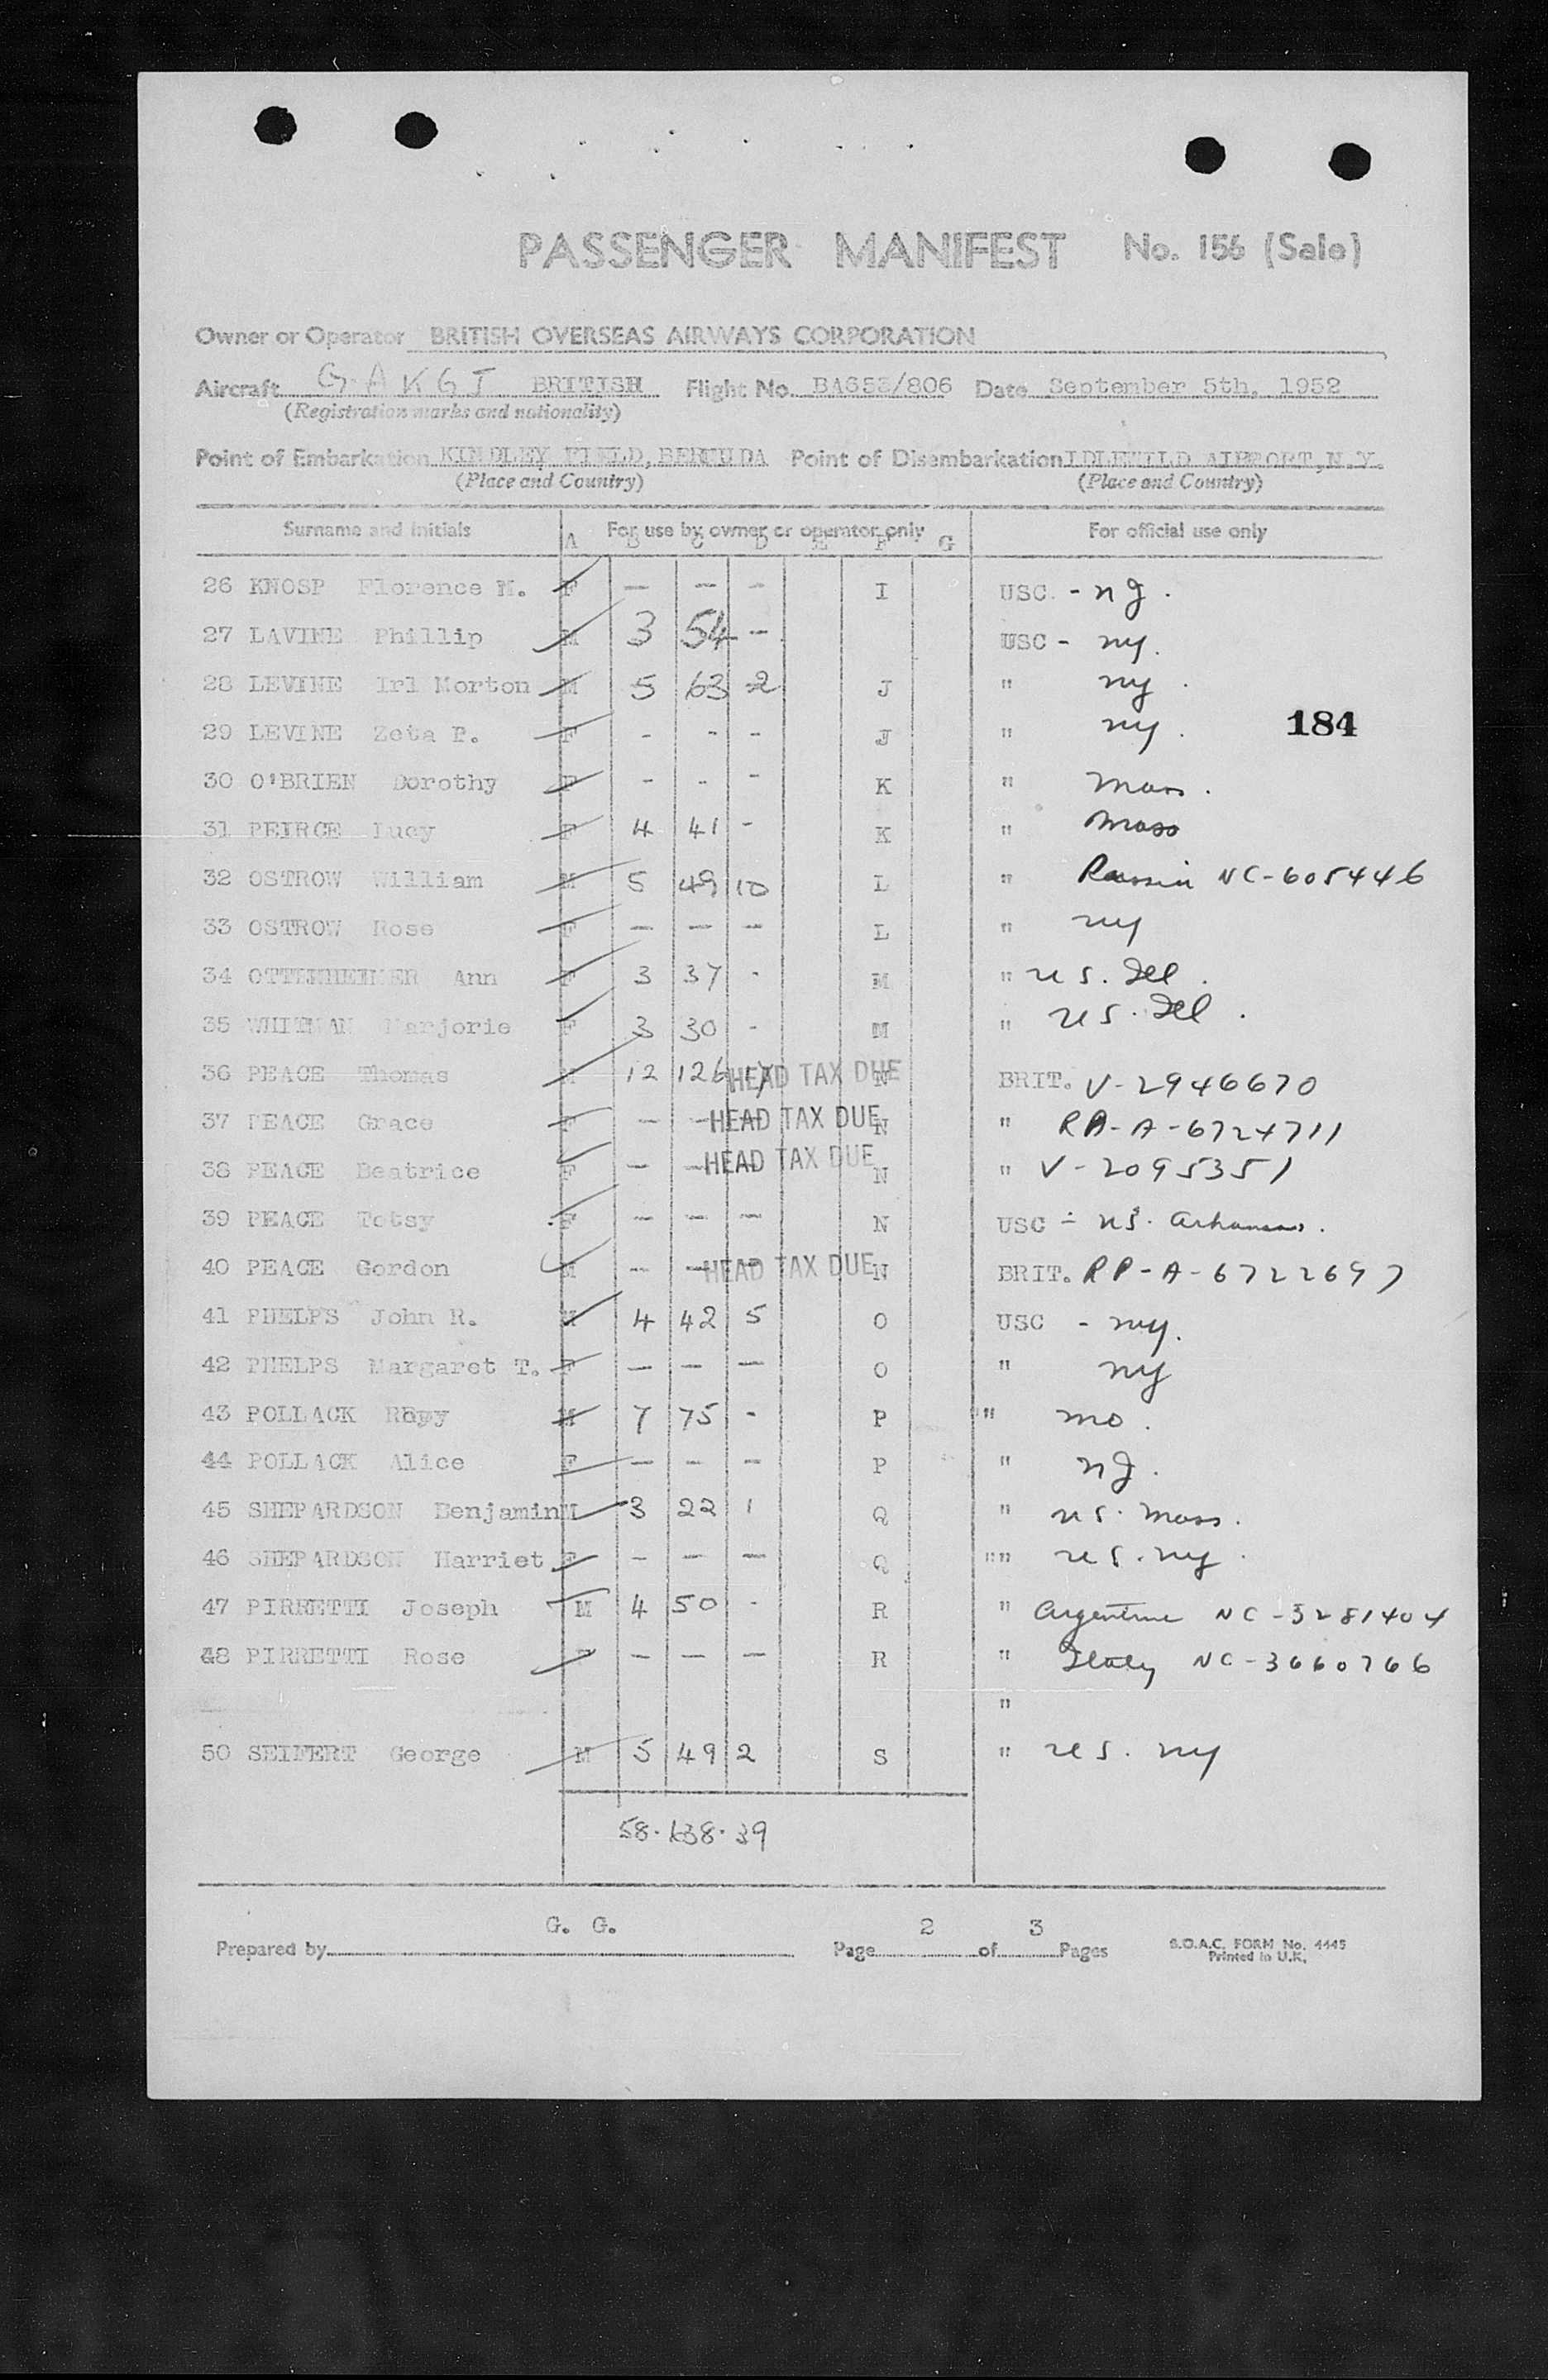 PASSENGER MANIFEST No. 156 (Sale)
Owner or Operator BRITISH OVERSEAS AIRWAYS CORPORATION
Aircraft G-AKGJ BRITISH Flight No. BA653/806 Date September 5th, 1952
(Registration marks and nationality)
Point of Embarkation KINDLEY FIELD, BERMUDA Point of Disembarkation IDLEWILD AIRPORT, N.Y.
(Place and Country) (Place and Country)
Surname and initials For use by owner or operator only For official use only
A B C D E F G
26 KNOSP Florence M. F — — - I USC - NJ.
27 LAVINE Phillip M 3 54 - USC - NY.
28 LEVINE Irl Morton M 5 63 2 J " NY.
29 LEVINE Zeta P. F - - - J " NY.
184
30 O'BRIEN Dorothy F - - - K " Mass.
31 PEIRCE Lucy F 4 41 - K " Mass
32 OSTROW William M 5 49 10 L " Russia NC-605446
33 OSTROW Rose F — — — L " NY
34 OTTENHEIMER Ann F 3 37 - M " US. Ill.
35 WHITMAN Marjorie F 3 30 - M " US. Ill.
36 PEACE Thomas M 12 126 17 HEAD TAX DUE N BRIT. V-2946670
37 PEACE Grace F — — — HEAD TAX DUE N " RP-A-6724711
38 PEACE Beatrice F — — — HEAD TAX DUE N " V-2095351
39 PEACE Totsy F — — — N USC - US. Arkansas.
40 PEACE Gordon M — — — HEAD TAX DUE N BRIT. RP-A-6722697
41 PHELPS John R. M 4 42 5 O USC - NY.
42 PHELPS Margaret T. F — — — O " NY
43 POLLACK M 7 75 - P "" Mo.
44 POLLACK Alice F — - — P " NJ.
45 SHEPARDSON Benjamin M 3 22 1 Q " US. Mass.
46 SHEPARDSON Harriet F - — — Q "" US. NY.
47 PIRRETTI Joseph M 4 50 - R " Argentine NC-3281404
48 PIRRETTI Rose F — — — R " Italy NC-3660766
"
50 SEIFERT George M 5 49 2 S " US. NY
58. 638. 39
G. G. 2 3
Prepared by Page of Pages B.O.A.C. FORM No. 4445
Printed in U.K.